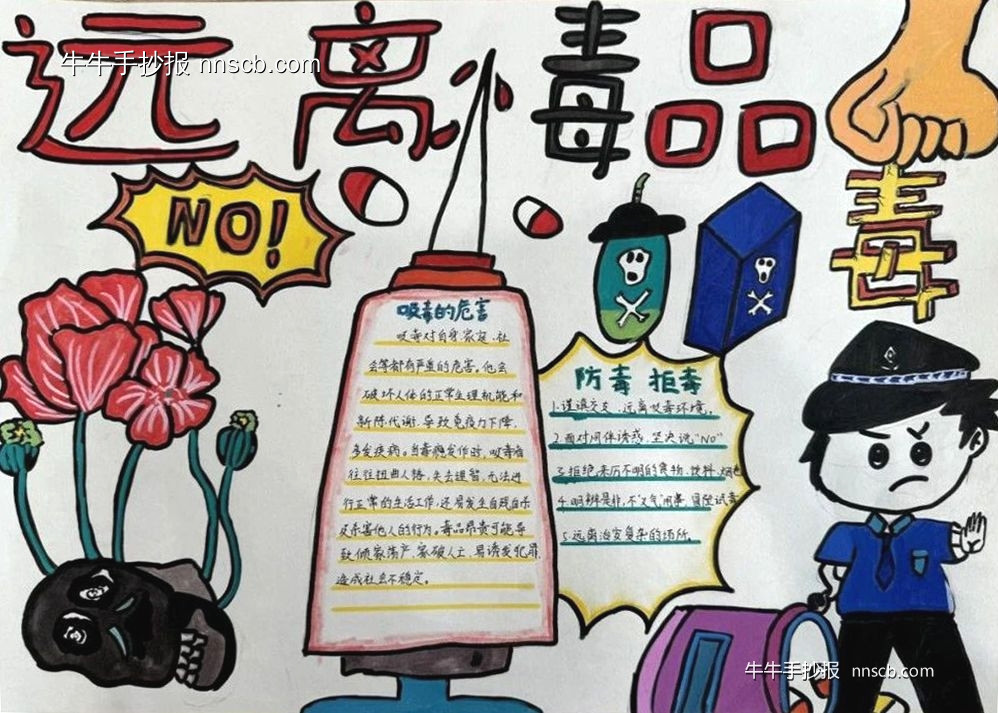 远离毒品
牛牛手抄报 nnscb.com
NO!
毒
吸毒的危害
吸毒对自身、家庭、社
会等都有严重的危害。他会
破坏人体的正常生理机能和
新陈代谢,导致免疫力下降,
多发疾病。当毒瘾发作时,吸毒者
往往扭曲人格,失去理智,无法进
行正常的生活工作,还易发生自残自杀
及杀害他人的行为。毒品昂贵可能导
致倾家荡产、家破人亡,易诱发犯罪,
造成社会不稳定。
防毒 拒毒
1.谨慎交友,远离吸毒环境。
2.面对同伴诱惑,坚决说“NO”
3.拒绝来历不明的食物、饮料、烟色
4.明辨是非,不“义气”用事,冒险试毒
5.远离治安复杂的场所。
牛牛手抄报 nnscb.com